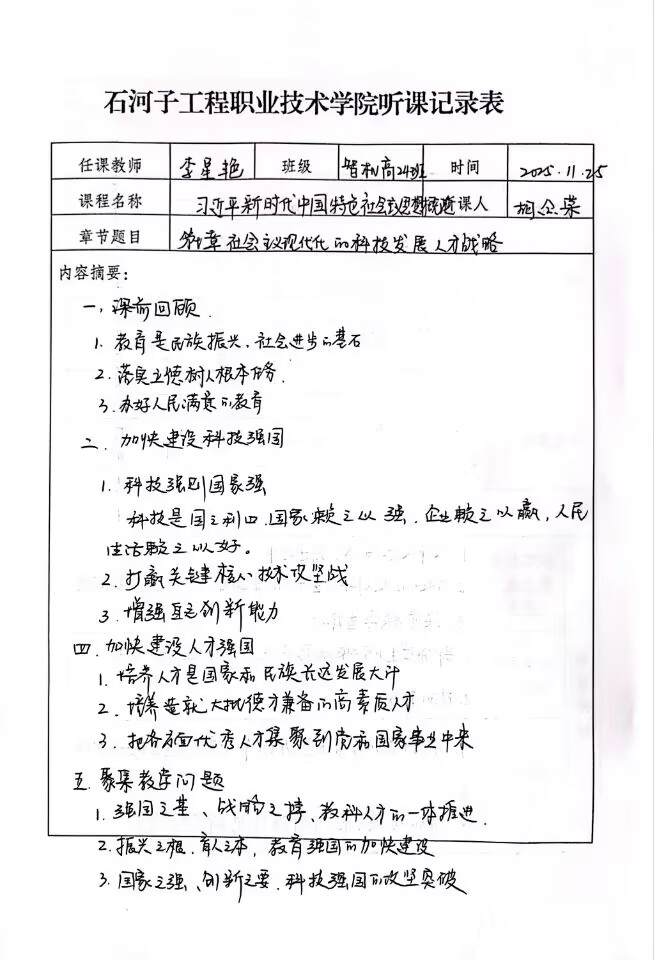 石河子工程职业技术学院听课记录表
任课教师 李星艳 班级 智机高24班 时间 2025.11.25
课程名称 习近平新时代中国特色社会主义思想概论 听课人
章节题目 章社会主义现代化的科技发展人才战略
内容摘要：
一，课前回顾.
1. 教育是民族振兴、社会进步的基石
2. 落实立德树人根本任务.
3. 办好人民满意的教育
二. 加快建设科技强国
1. 科技强则国家强
科技是国之利四.国家赖之以强.企业赖之以赢,人民
生活赖之以好。
2. 打赢关键核心技术攻坚战
3. 增强自主创新能力
四.加快建设人才强国
1. 培养人才是国家和民族长远发展大计
2. 培养造就大批德才兼备的高素质人才
3. 把各方面优秀人才集聚到党和国家事业中来
五.聚集教学问题
1. 强国之基、战略之撑、教科人才的一体推进.
2. 振兴之根.育人之本，教育强国的加快建设
3. 国家之强、创新之要.科技强国的攻坚突破